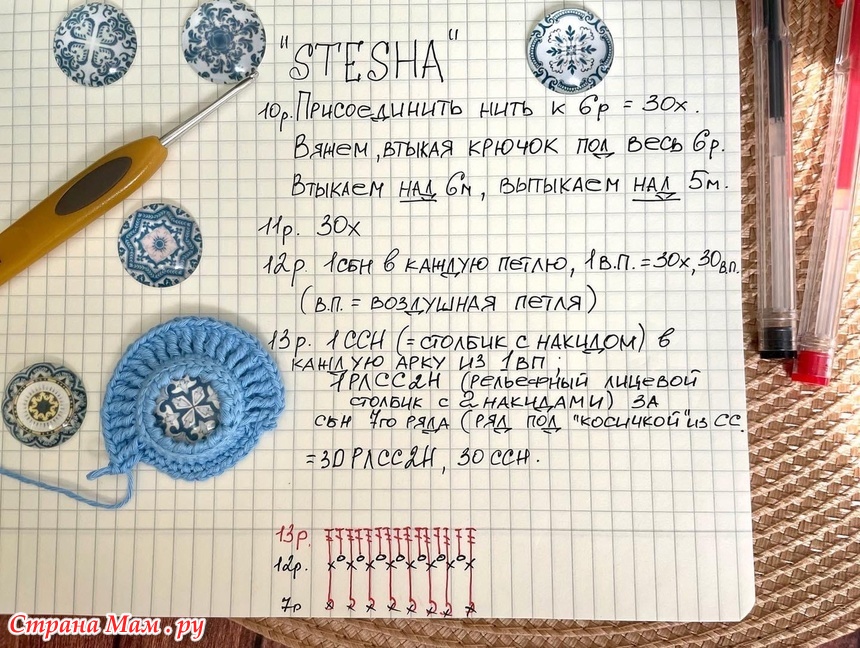 "STESHA"
10р. Присоединить нить к 6р = 30х.
Вяжем, втыкая крючок под весь 6р.
Втыкаем над 6м, вытыкаем над 5м.
11р. 30х
12р. 1сбн в каждую петлю, 1в.п. = 30х, 30в.п.
(в.п. = воздушная петля)
13р. 1ССН (= столбик с накидом) в
каждую арку из 1вп;
1РЛСС2Н (рельефный лицевой
столбик с 2 накидами) за
сбн 7го ряда (ряд под "косичкой" из СС.
= 30РЛСС2Н, 30ССН.
13р.
12р.
7р
Страна Мам.ру